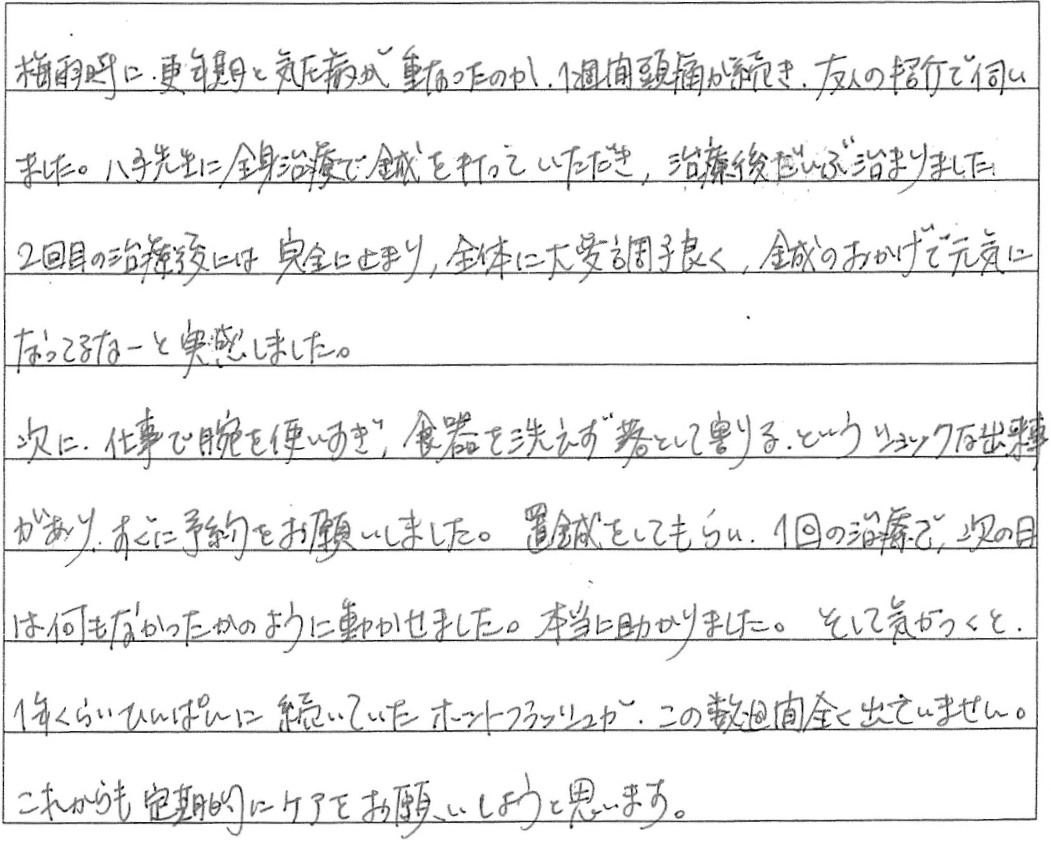 梅雨時に、更年期と気圧病が重なったのか、1週間頭痛が続き、友人の紹介で伺い
ました。八子先生に全身治療で鍼を打っていただき、治療後だいぶ治まりました。
2回目の治療後には完全に止まり、全体に大変調子良く、鍼のおかげで元気に
なってるなーと実感しました。
次に、仕事で腕を使いすぎ、食器を洗えず落として割る、というショックな出来事
があり、すぐに予約をお願いしました。置鍼をしてもらい、1回の治療で、次の日
は何もなかったかのように動かせました。本当に助かりました。そして気がつくと、
1年くらいひんぱんに続いていたホットフラッシュが、この数週間全く出ていません。
これからも定期的にケアをお願いしようと思います。